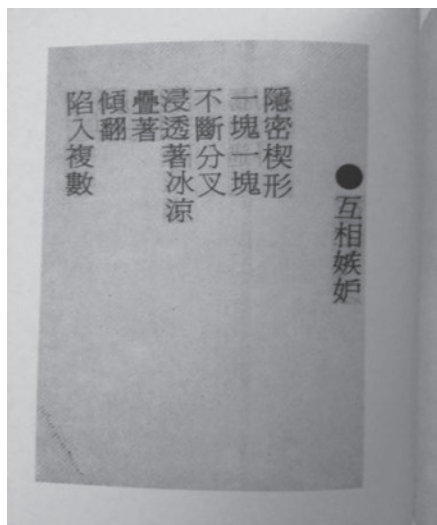 ●互相嫉妒
隱密楔形
一塊一塊
不斷分叉
浸透著冰涼
疊著
傾翻
陷入複數